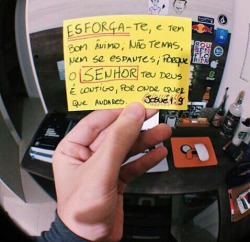 ESFORÇA-TE, E TEM
BOM ÂNIMO, NÃO TEMAS,
NEM SE ESPANTES, PORQUE
O SENHOR TEU DEUS
É CONTIGO, POR ONDE QUER
QUE ANDARES. Josué 1:9